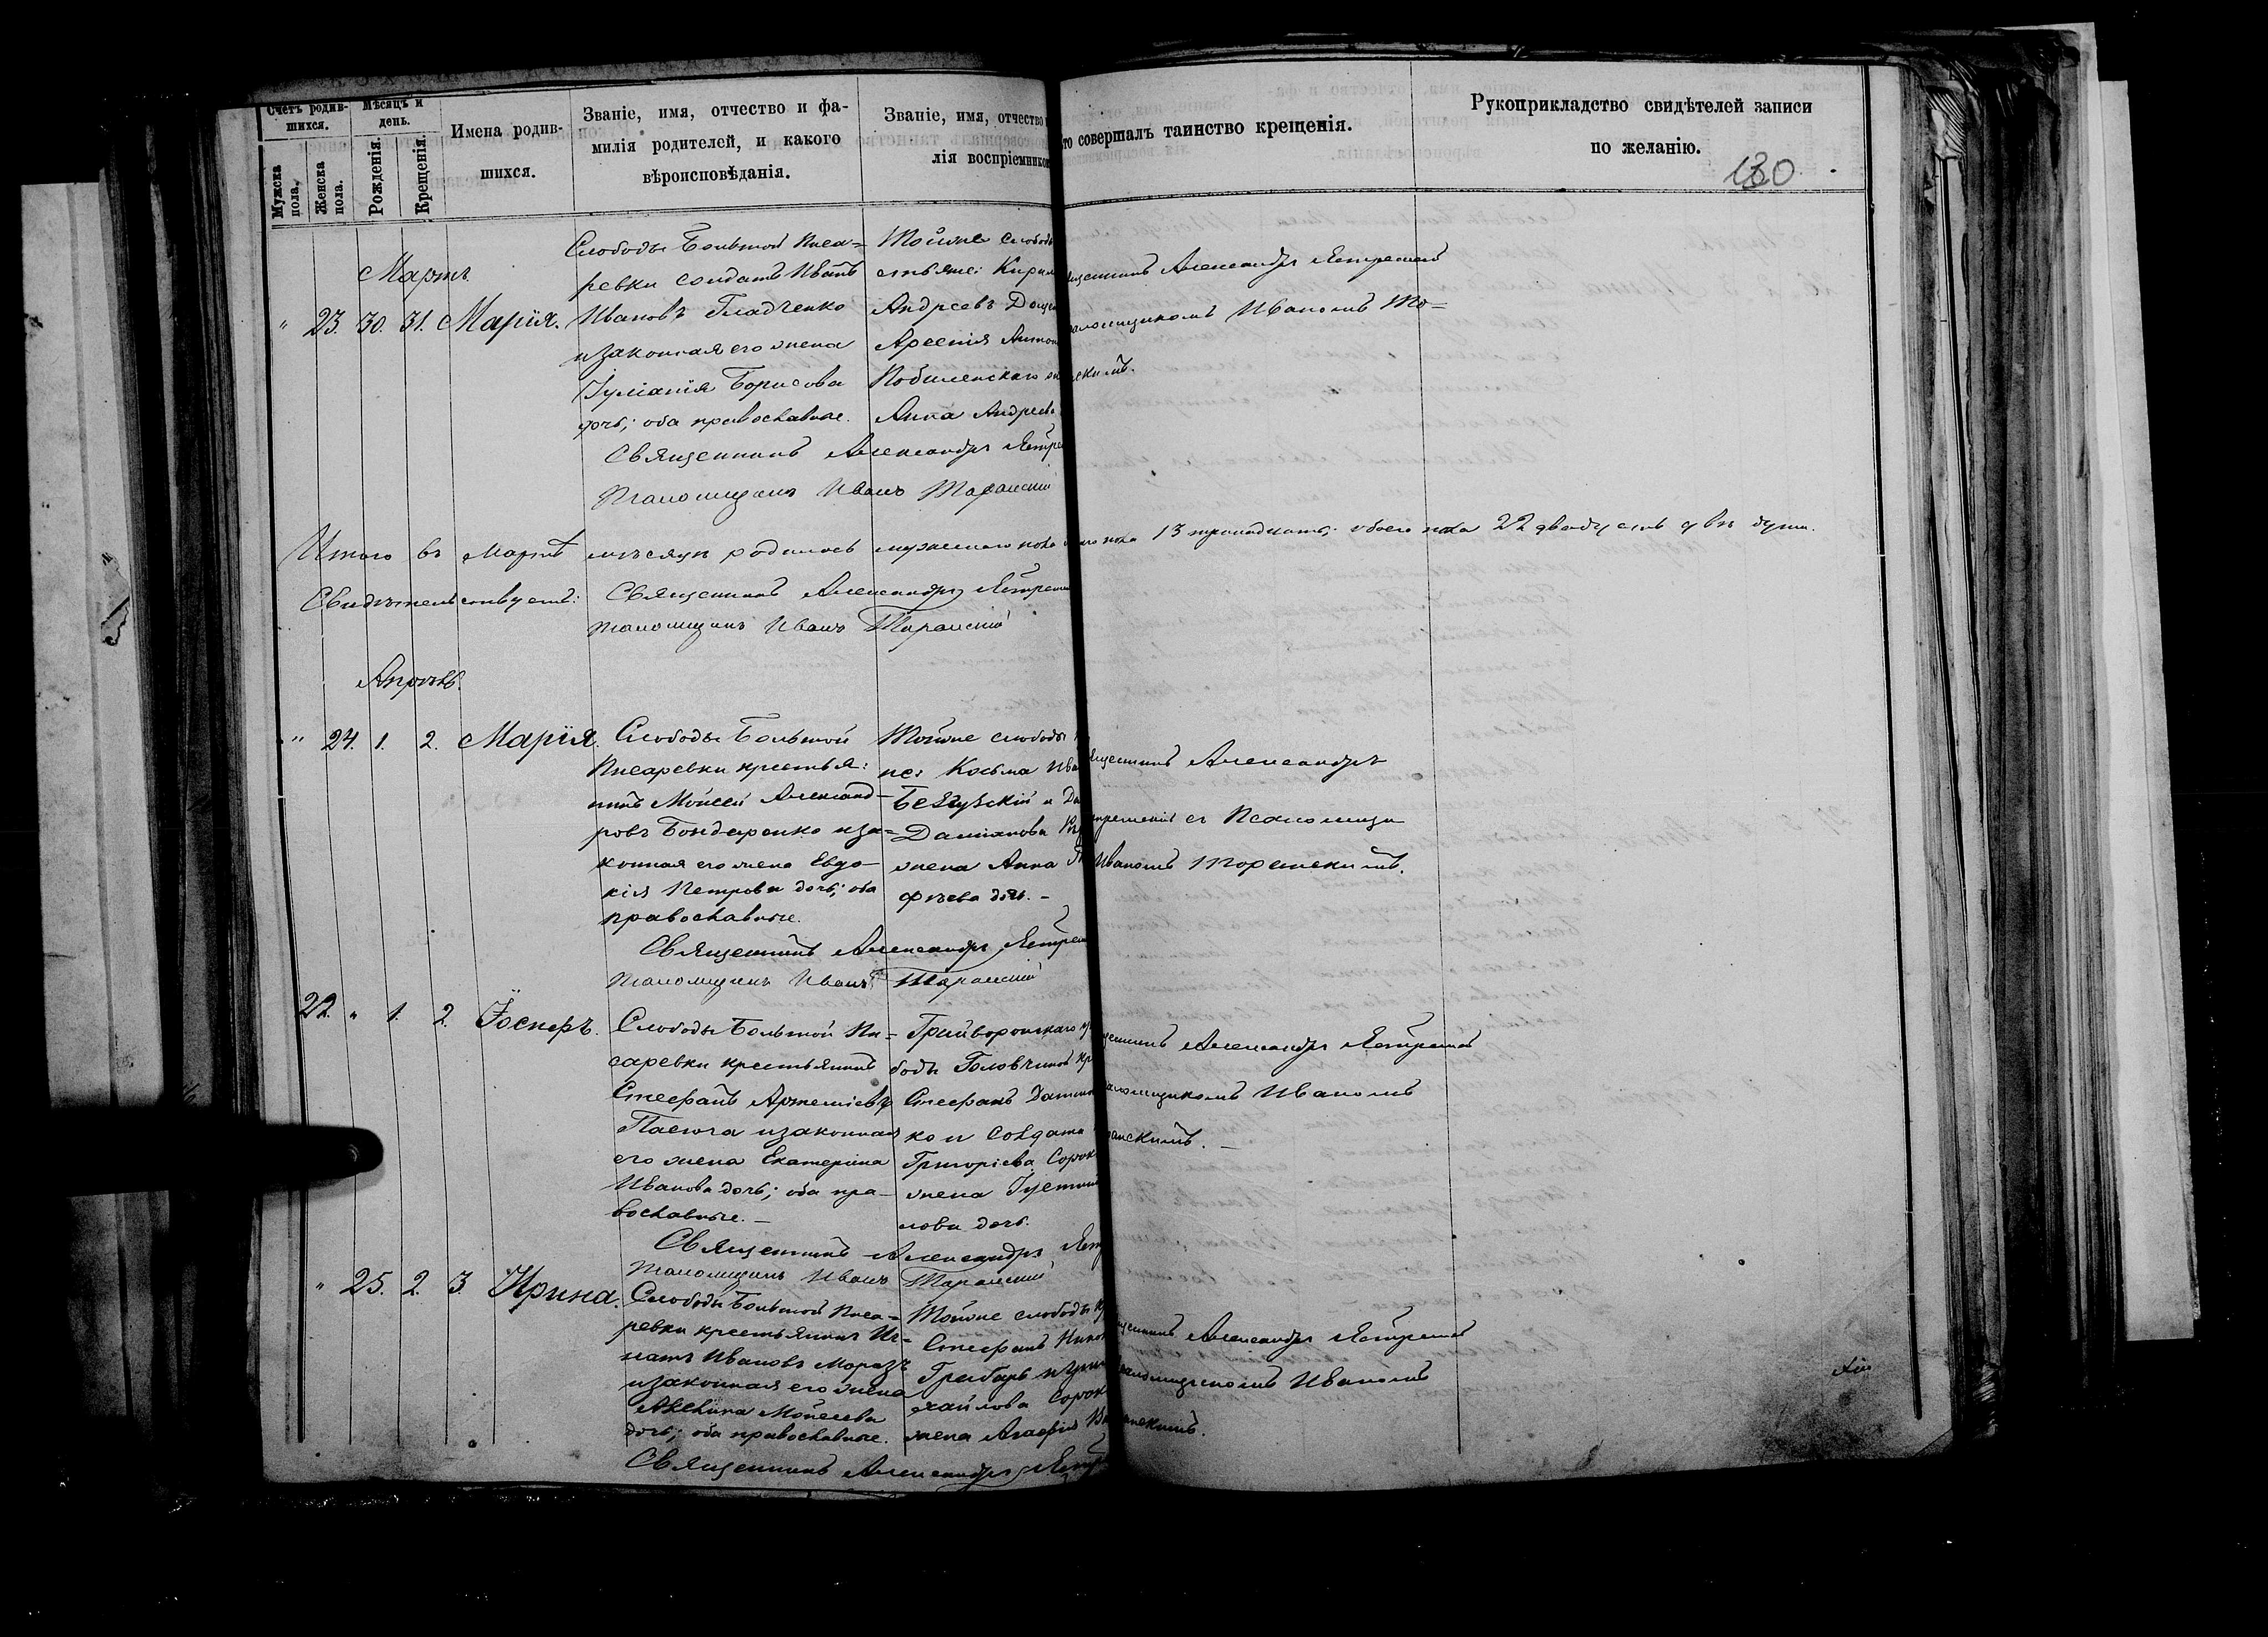 Счетъ родив-
шихся.
Мѣсяцъ и
день.
Мужска
пола.
Женска
пола.
Рожденія.
Крещенія.
Имена родив-
шихся.
Званіе, имя, отчество и фа-
милія родителей, и какого
вѣроисповѣданія.
Званіе, имя, отчество
лія воспріемниковъ
то совершалъ таинство крещенія.
Рукоприкладство свидѣтелей записи
по желанію.
130
Мартъ.
" 23. 30. 31. Марія.
Слободы Большой Писа=
ревки солдатъ Иванъ
Ивановъ Гладченко
и законная его жена
Іуліанія Борисова
дочь; оба православные.
Тойже слобод
стьяне: Кирил
Андреевъ
Арсенія Антон
Анна Андреева
щенникъ Александръ
аломщикомъ Иваномъ То=
скимъ.
Священникъ Александръ
Псаломщикъ Иванъ
Итого въ Мартѣ мѣсяцѣ родилось мужескаго пола
13 тринадцать; обоего пола 22 двадцать двѣ души.
Свидѣтельствуетъ: Священникъ Александръ
Псаломщикъ Иванъ
Апрѣль.
" 24. 1. 2. Марія.
Слободы Большой
Писаревки крестья:
нинъ Мойсей Александ-
ровъ Бондаренко и за=
конная его жена Евдо-
кія Петрова дочь; оба
православные.
Тойже слободы
не: Косьма Ива
и Да
Даміанова
жена Анна
фѣева дочь. -
щенникъ Александръ
съ Псаломщи
Иваномъ
Священникъ Александръ
Псаломщикъ Иванъ
22. " 1. 2. Іосифъ.
Слободы Большой Пи=
саревки крестьянинъ
Стефанъ Артеміевъ
и законная
его жена Екатерина
Иванова дочь; оба пра-
вославные. -
Грайворонскаго у
боды Головчиной кр
Стефанъ
ко и солдата
Григоріева Сорок
жена
лова дочь.
щенникъ Александръ
аломщикомъ Иваномъ
анскимъ. -
Священникъ Александръ
Псаломщикъ Иванъ
" 25. 2. 3. Ирина.
Слободы Большой Писа=
ревки крестьянинъ Иг=
натъ Ивановъ Морозъ
и законная его жена
Мойсеева
дочь; оба православные.
Тойже слободы кр
Стефанъ
Грибарь
хайлова Сорок
жена Агафія
щенникъ Александръ
аломщикомъ Иваномъ
анскимъ.
Священникъ Александръ